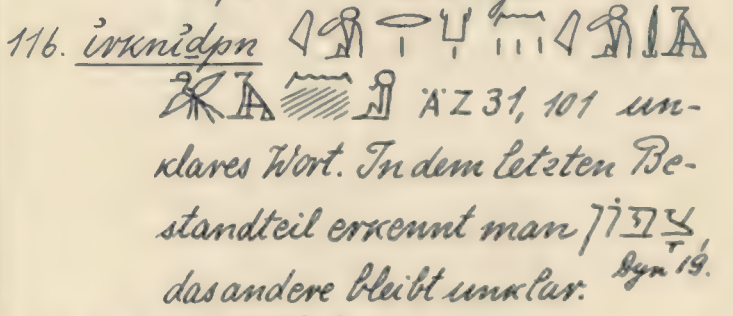 116. i҆rkni҆ḏpn
ÄZ 31, 101 un-
klares Wort. In dem letzten Be-
standteil erkennt man צפון,
Dyn 19.
das andere bleibt unklar.